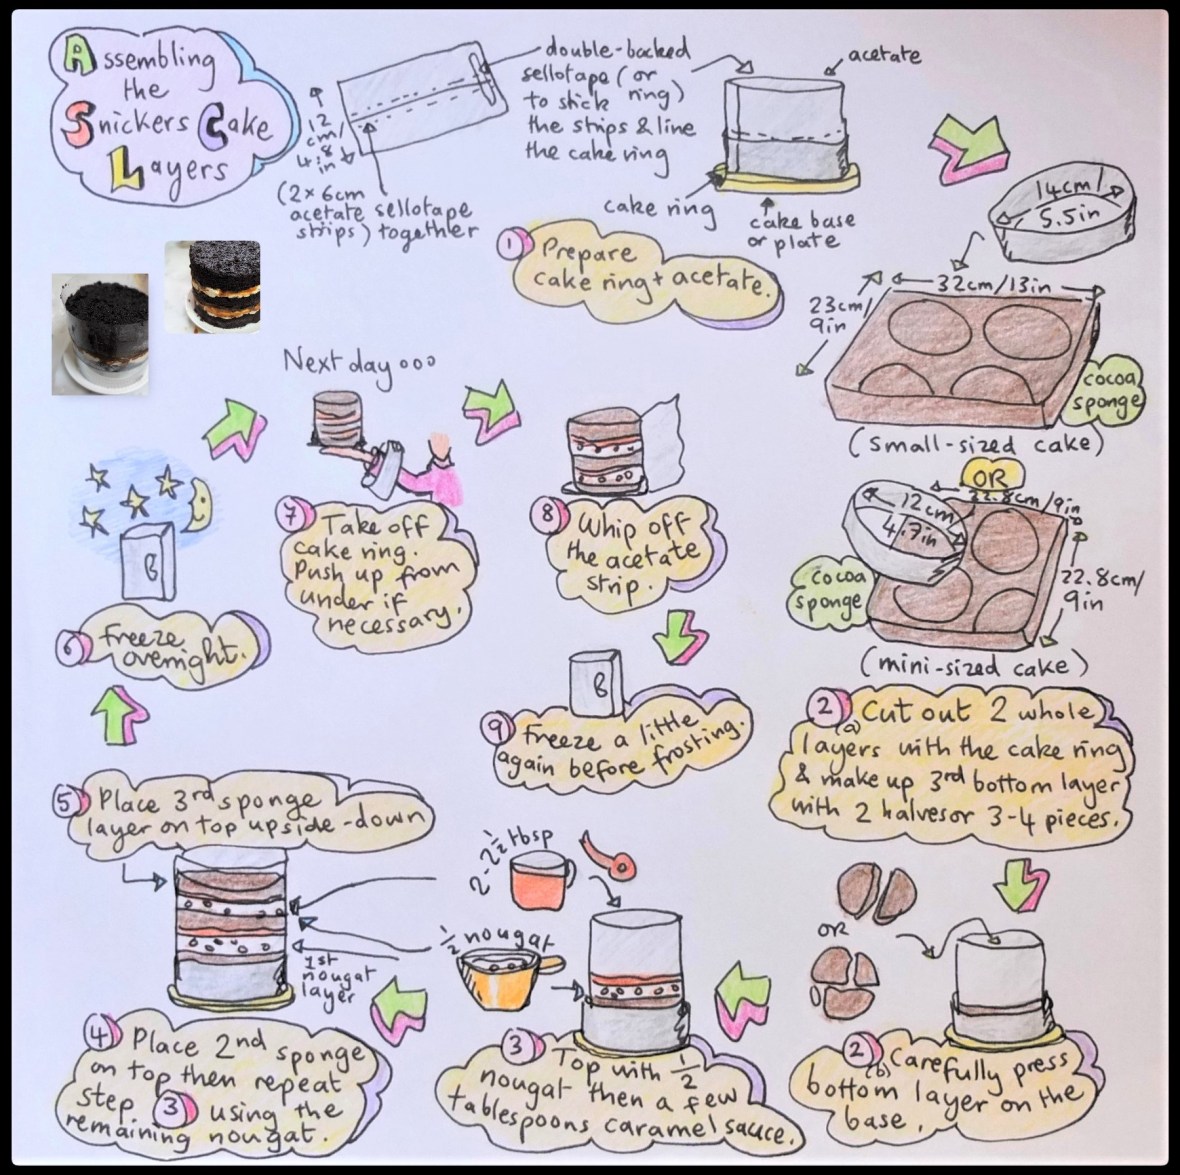 Assembling
the
Snickers Cake
Layers
12
cm/
4.8
in
(2x6cm
acetate
strips)
sellotape
together
double-backed
sellotape (or
ring)
to stick
the strips & line
the cake ring
acetate
cake ring
cake base
or plate
1 Prepare
cake ring + acetate.
14cm
5.5in
32cm/13in
23cm/
9in
cocoa
sponge
(small-sized cake)
OR
12cm
4.7in
22.8cm/9in
22.8cm/
9in
cocoa
sponge
(mini-sized cake)
2 (a) Cut out 2 whole
layers with the cake ring
& make up 3rd bottom layer
with 2 halvesor 3-4 pieces.
OR
2 (b) Carefully press
bottom layer on the
base.
2-2½ tbsp
½ nougat
3 Top with ½
nougat then a few
tablespoons caramel sauce.
1st
nougat
layer
4 Place 2nd sponge
on top then repeat
step 3 using the
remaining nougat.
5 Place 3rd sponge
layer on top upside-down
6 Freeze
overnight.
B
Next day ooo
7 Take off
cake ring.
Push up from
under if
necessary.
8 Whip off
the acetate
strip.
B
9 Freeze a little
again before frosting.